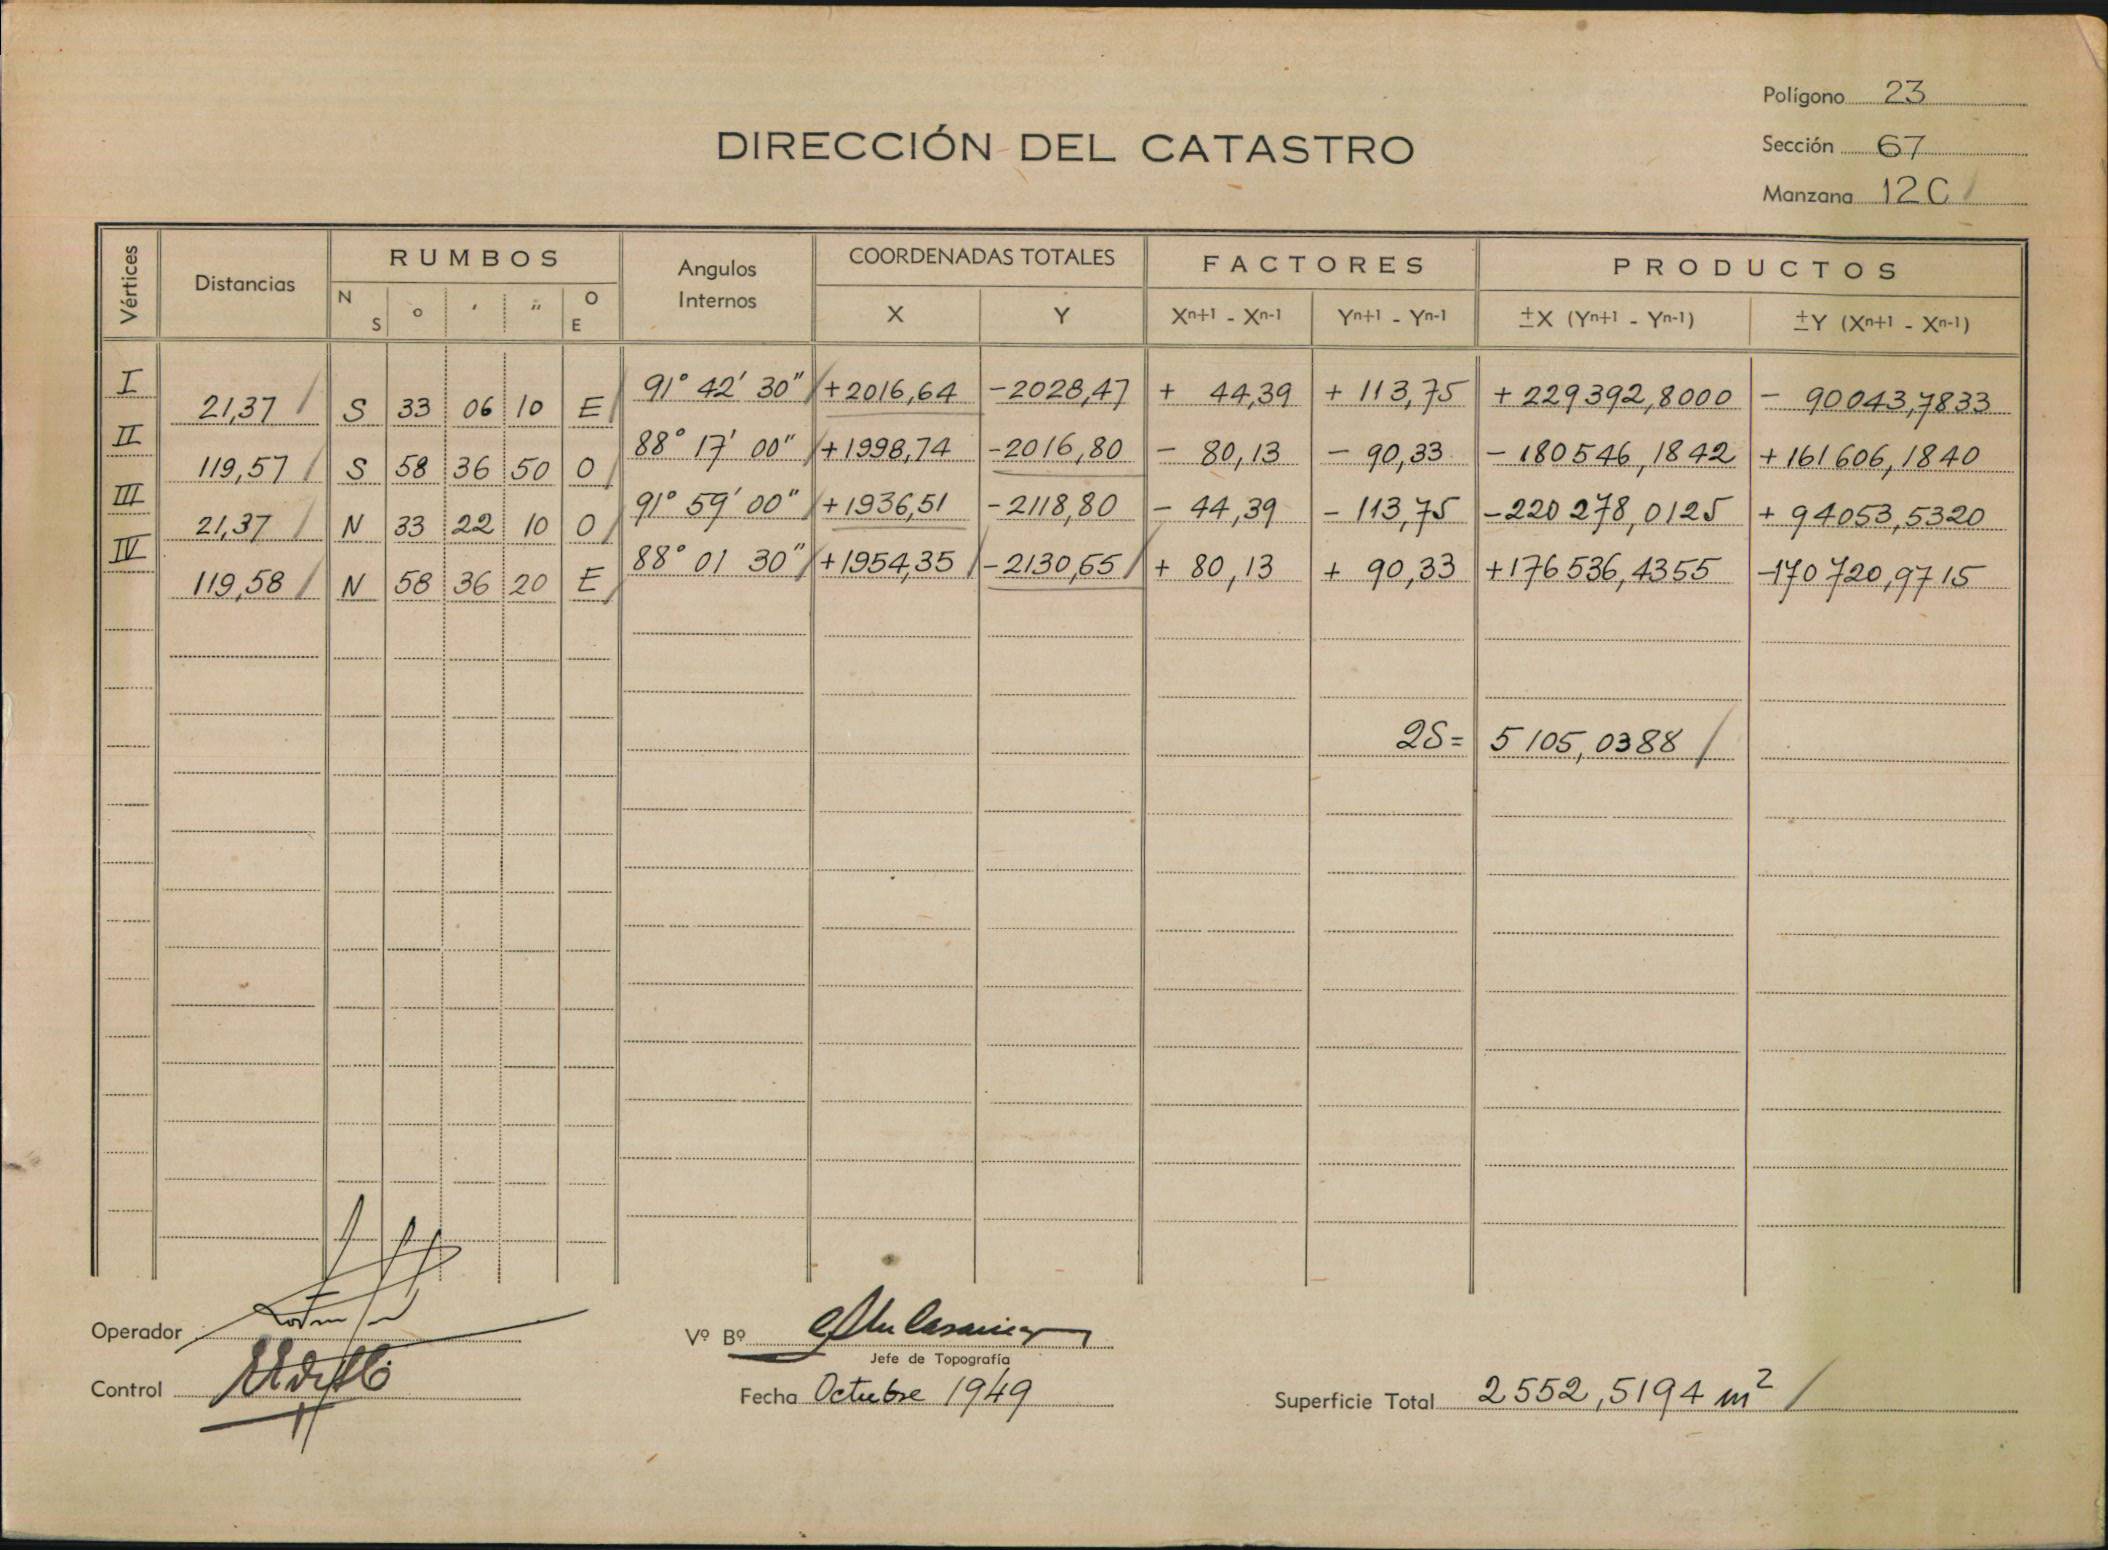 Polígono 23
DIRECCIÓN DEL CATASTRO
Sección 67
Manzana 12 C
Vértices Distancias RUMBOS Angulos Internos COORDENADAS TOTALES FACTORES PRODUCTOS
N S ° ' " O E X Y Xn+1 - Xn-1 Yn+1 - Yn-1 ±X (Yn+1 - Yn-1) ±Y (Xn+1 - Xn-1)
I 21,37 S 33 06 10 E 91° 42' 30" +2016,64 -2028,47 + 44,39 + 113,75 + 229392,8000 - 90043,7833
II 119,57 S 58 36 50 O 88° 17' 00" +1998,74 -2016,80 - 80,13 - 90,33 - 180546,1842 + 161606,1840
III 21,37 N 33 22 10 O 91° 59' 00" +1936,51 -2118,80 - 44,39 - 113,75 -220278,0125 + 94053,5320
IV 119,58 N 58 36 20 E 88° 01 30" +1954,35 -2130,55 + 80,13 + 90,33 +176536,4355 -170720,9715
2S= 5105,0388
Operador
Vº Bº
Jefe de Topografía
Control
Fecha Octubre 1949
Superficie Total 2552,5194 m²